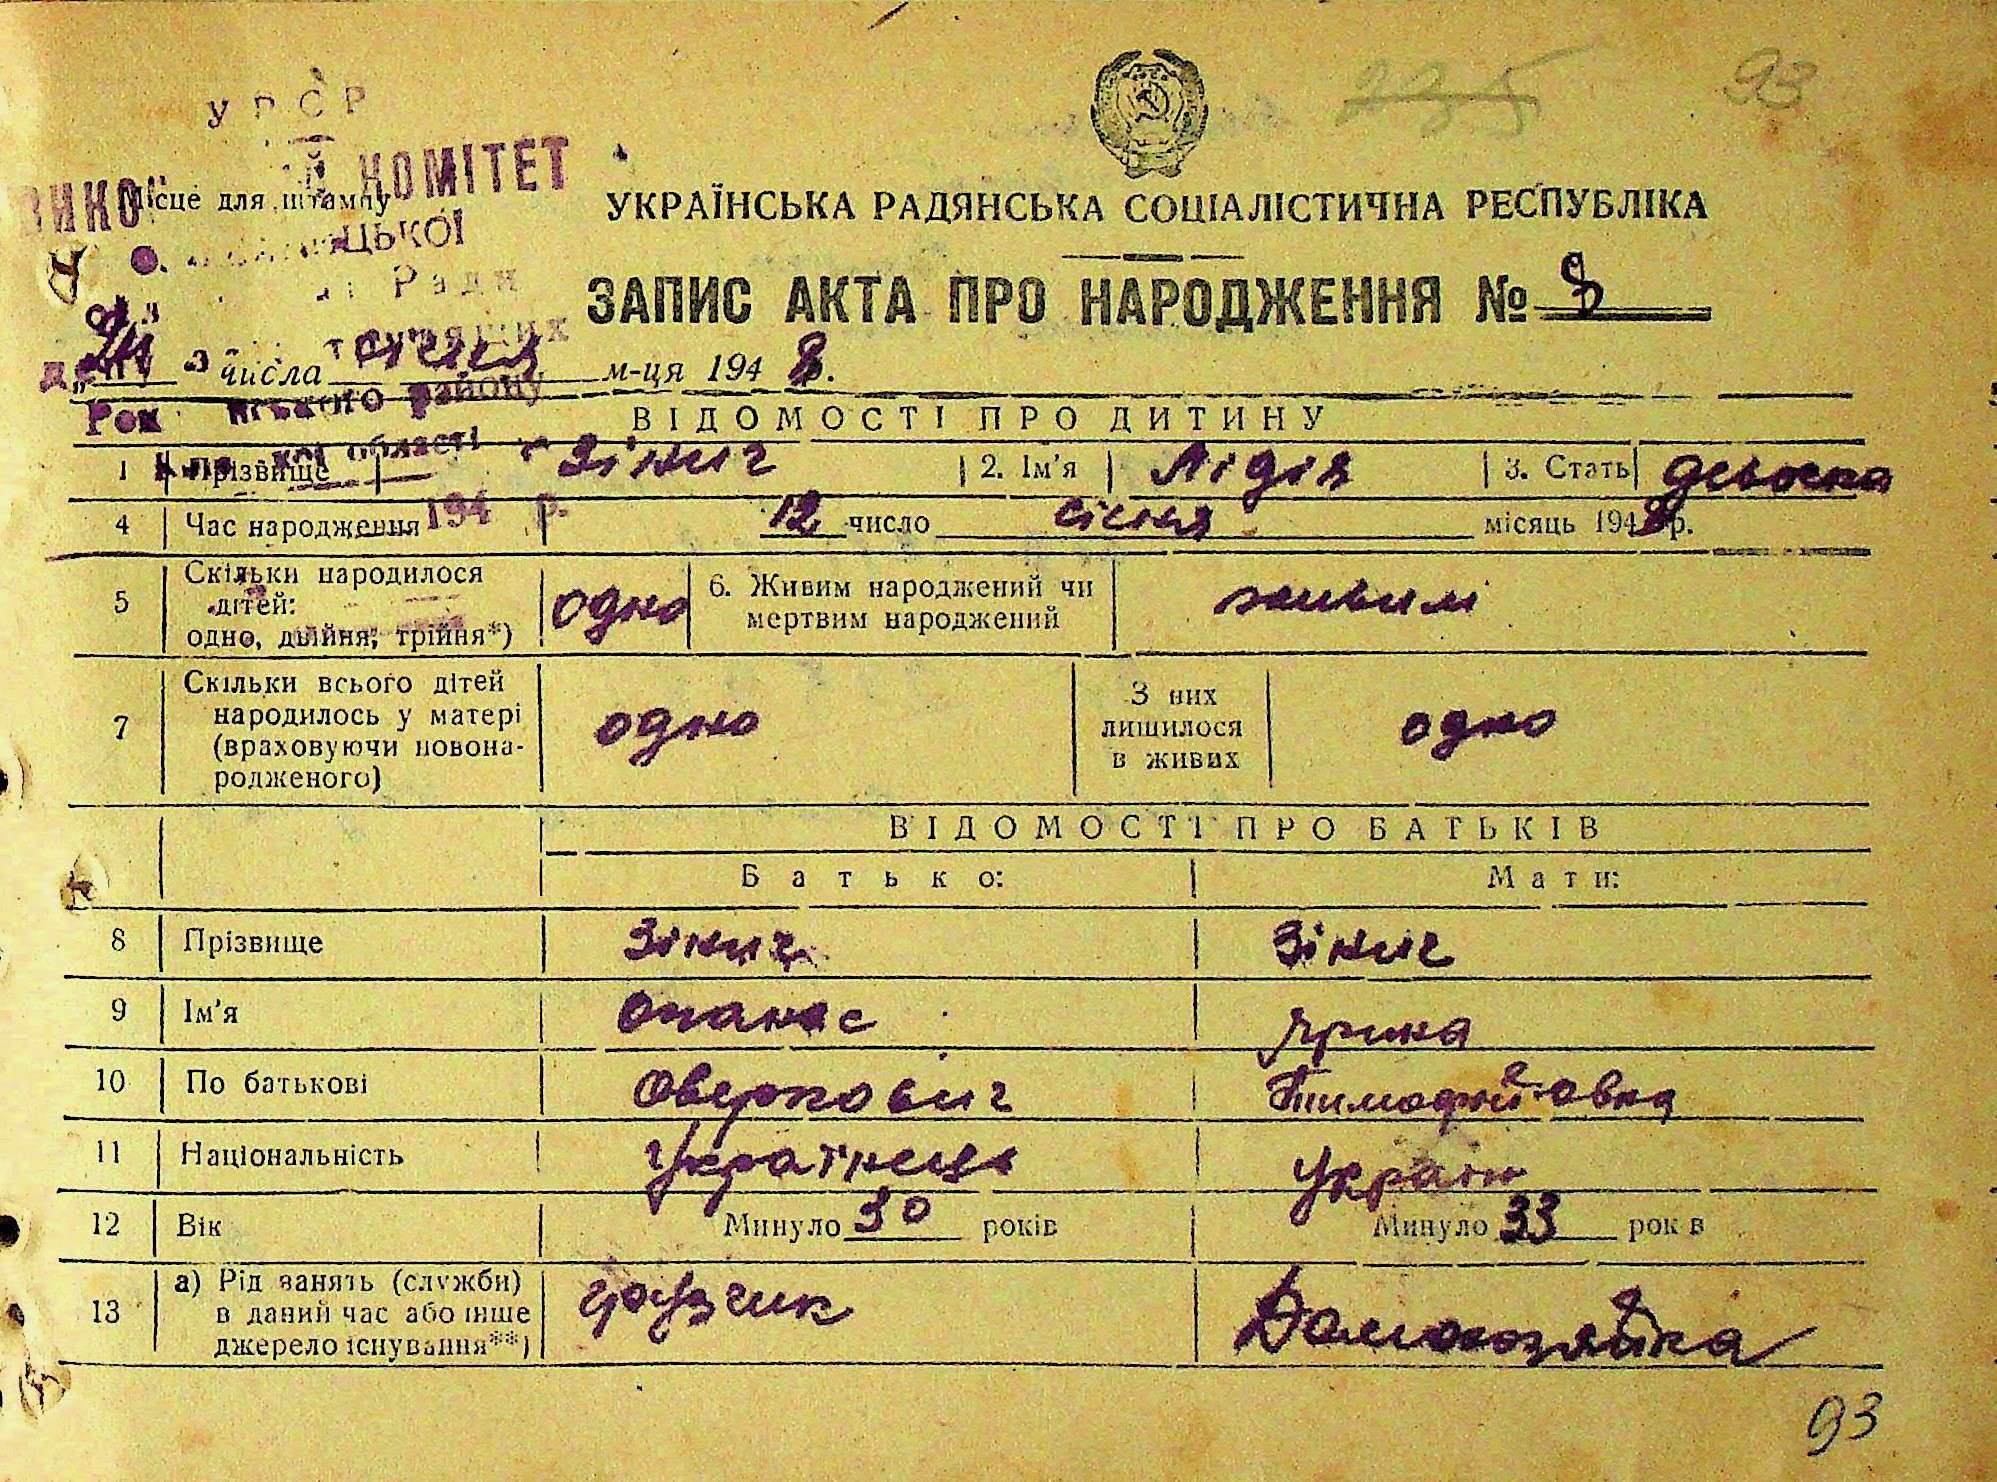 УРСР
93
КОМІТЕТ
Місце для штампу
УКРАЇНСЬКА РАДЯНСЬКА СОЦІАЛІСТИЧНА РЕСПУБЛІКА
Ради
ЗАПИС АКТА ПРО НАРОДЖЕННЯ № 8
числа січня м-ця 1948.
Рок району
ВІДОМОСТІ ПРО ДИТИНУ
області
1 Прізвище Зінич 2. Ім'я Лідія 3. Стать
194 р.
4 Час народження 12 число січня місяць 1948 р.
5 Скільки народилося дітей: одно, двійня, трійня*) одно 6. Живим народжений чи мертвим народжений живим
7 Скільки всього дітей народилось у матері (враховуючи новонародженого) одно З них лишилося в живих одно
ВІДОМОСТІ ПРО БАТЬКІВ
Батько: Мати:
8 Прізвище Зінич Зінич
9 Ім'я Опанас Ярина
10 По батькові Оверкович
11 Національність Українець Україн
12 Вік Минуло 30 років Минуло 33 рок в
13 а) Рід занять (служби) в даний час або інше джерело існування**) грузчик Домохозяйка
93